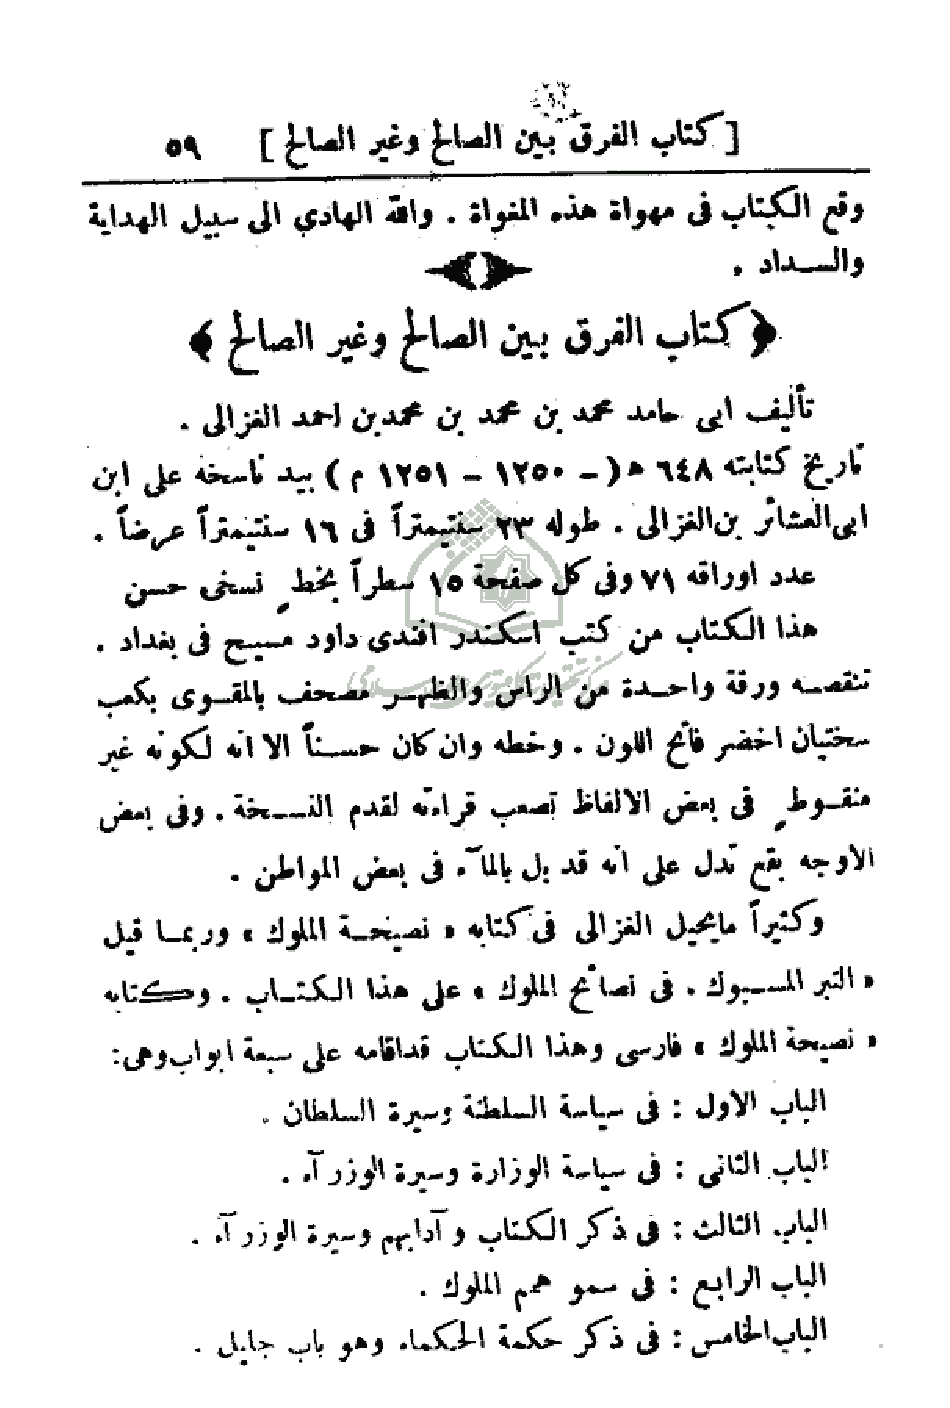 [ كتاب الفرق بين الصالح وغير الصالح ] ٥٩
وقع الكتاب فى مهواة هذه المغواة . والله الهادي الى سبيل الهداية
والسداد .
﴿ كتاب الفرق بين الصالح وغير الصالح ﴾
تأليف ابى حامد محمد بن محمد بن محمد بن احمد الغزالى .
تاريخ كتابته ٦٤٨ ه ( ـ ١٢٥٠ ـ ١٢٥١ م ) بيد ناسخه على ابن
ابى العشائر بن الغزالى . طوله ٢٣ سنتيمتراً فى ١٦ سنتيمتراً عرضاً .
عدد اوراقه ٧١ وفى كل صفحة ١٥ سطراً بخطٍ نسخى حسن
هذا الكتاب من كتب اسكندر افندى داود مسيح فى بغداد .
تنقصه ورقة واحدة من الراس والظهر مصحف بالمقوى بكعب
سختيان اخضر فاتح اللون . وخطه وان كان حسناً الا انه لكونه غير
منقوطٍ فى بعض الالفاظ تصعب قراءته لقدم النسخة . وفى بعض
الاوجه بقع تدل على انه قد بل بالمآء فى بعض المواطن .
وكثيراً ما يحيل الغزالى فى كتابه « نصيحة الملوك » وربما قيل
« التبر المسبوك . فى نصائح الملوك » على هذا الكتاب . وكتابه
« نصيحة الملوك » فارسى وهذا الكتاب قد اقامه على سبعة ابواب وهى :
الباب الاول : فى سياسة السلطنة وسيرة السلطان .
الباب الثانى : فى سياسة الوزارة وسيرة الوزرآء .
الباب الثالث : فى ذكر الكتاب وآدابهم وسيرة الوزرآء .
الباب الرابع : فى سمو همم الملوك .
الباب الخامس : فى ذكر حكمة الحكماء وهو باب جليل .